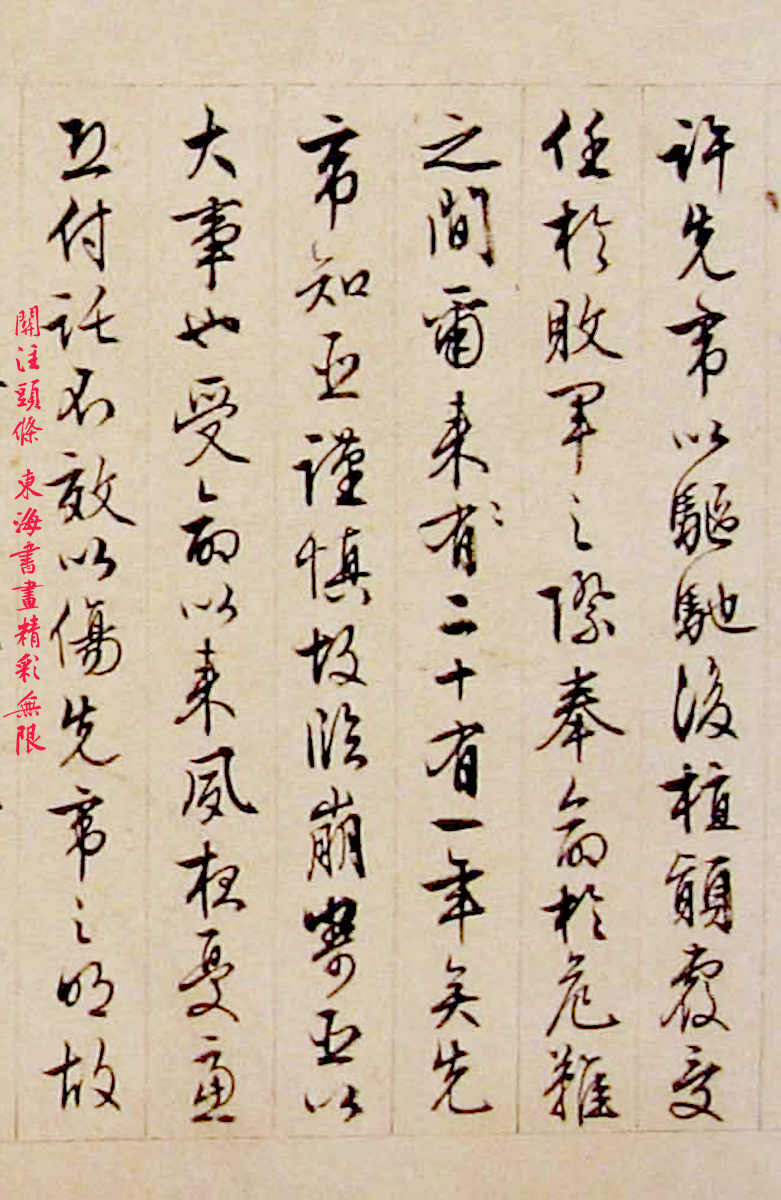 許先帝以驅馳後植顛覆受
任於敗軍之際奉命於危難
之間爾來有二十有一年矣先
帝知臣謹慎故臨崩寄臣以
大事也受命以來夙夜憂慮
恐付託不效以傷先帝之明故
關注頭條 東海書畫精彩無限